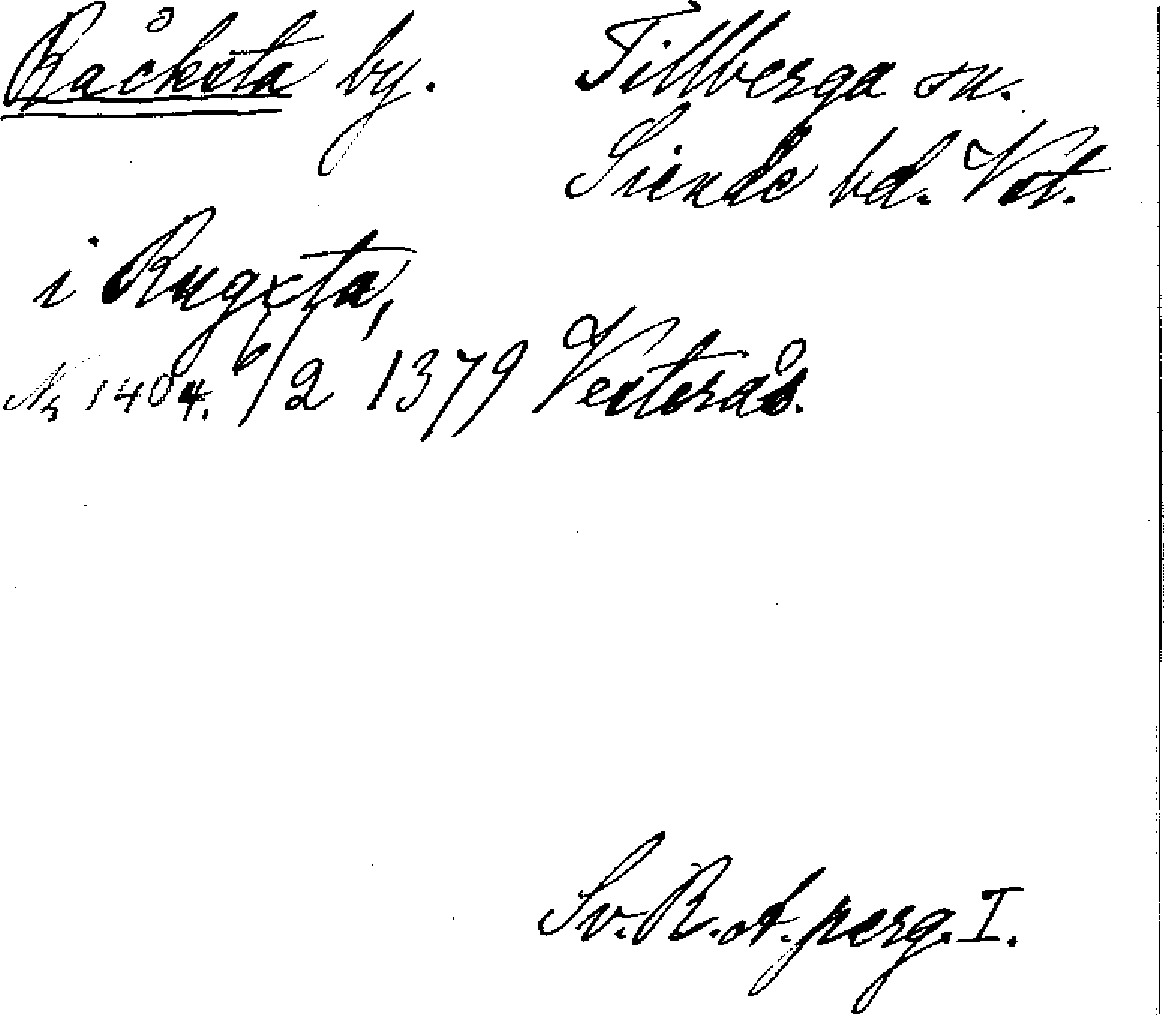 Råcksta by. Tillberga sn.
Siende hd. Vst.
i Rugxta,
Nr 1404. 6/2 1379 Vesterås.
Sv. R. A. perg. I.